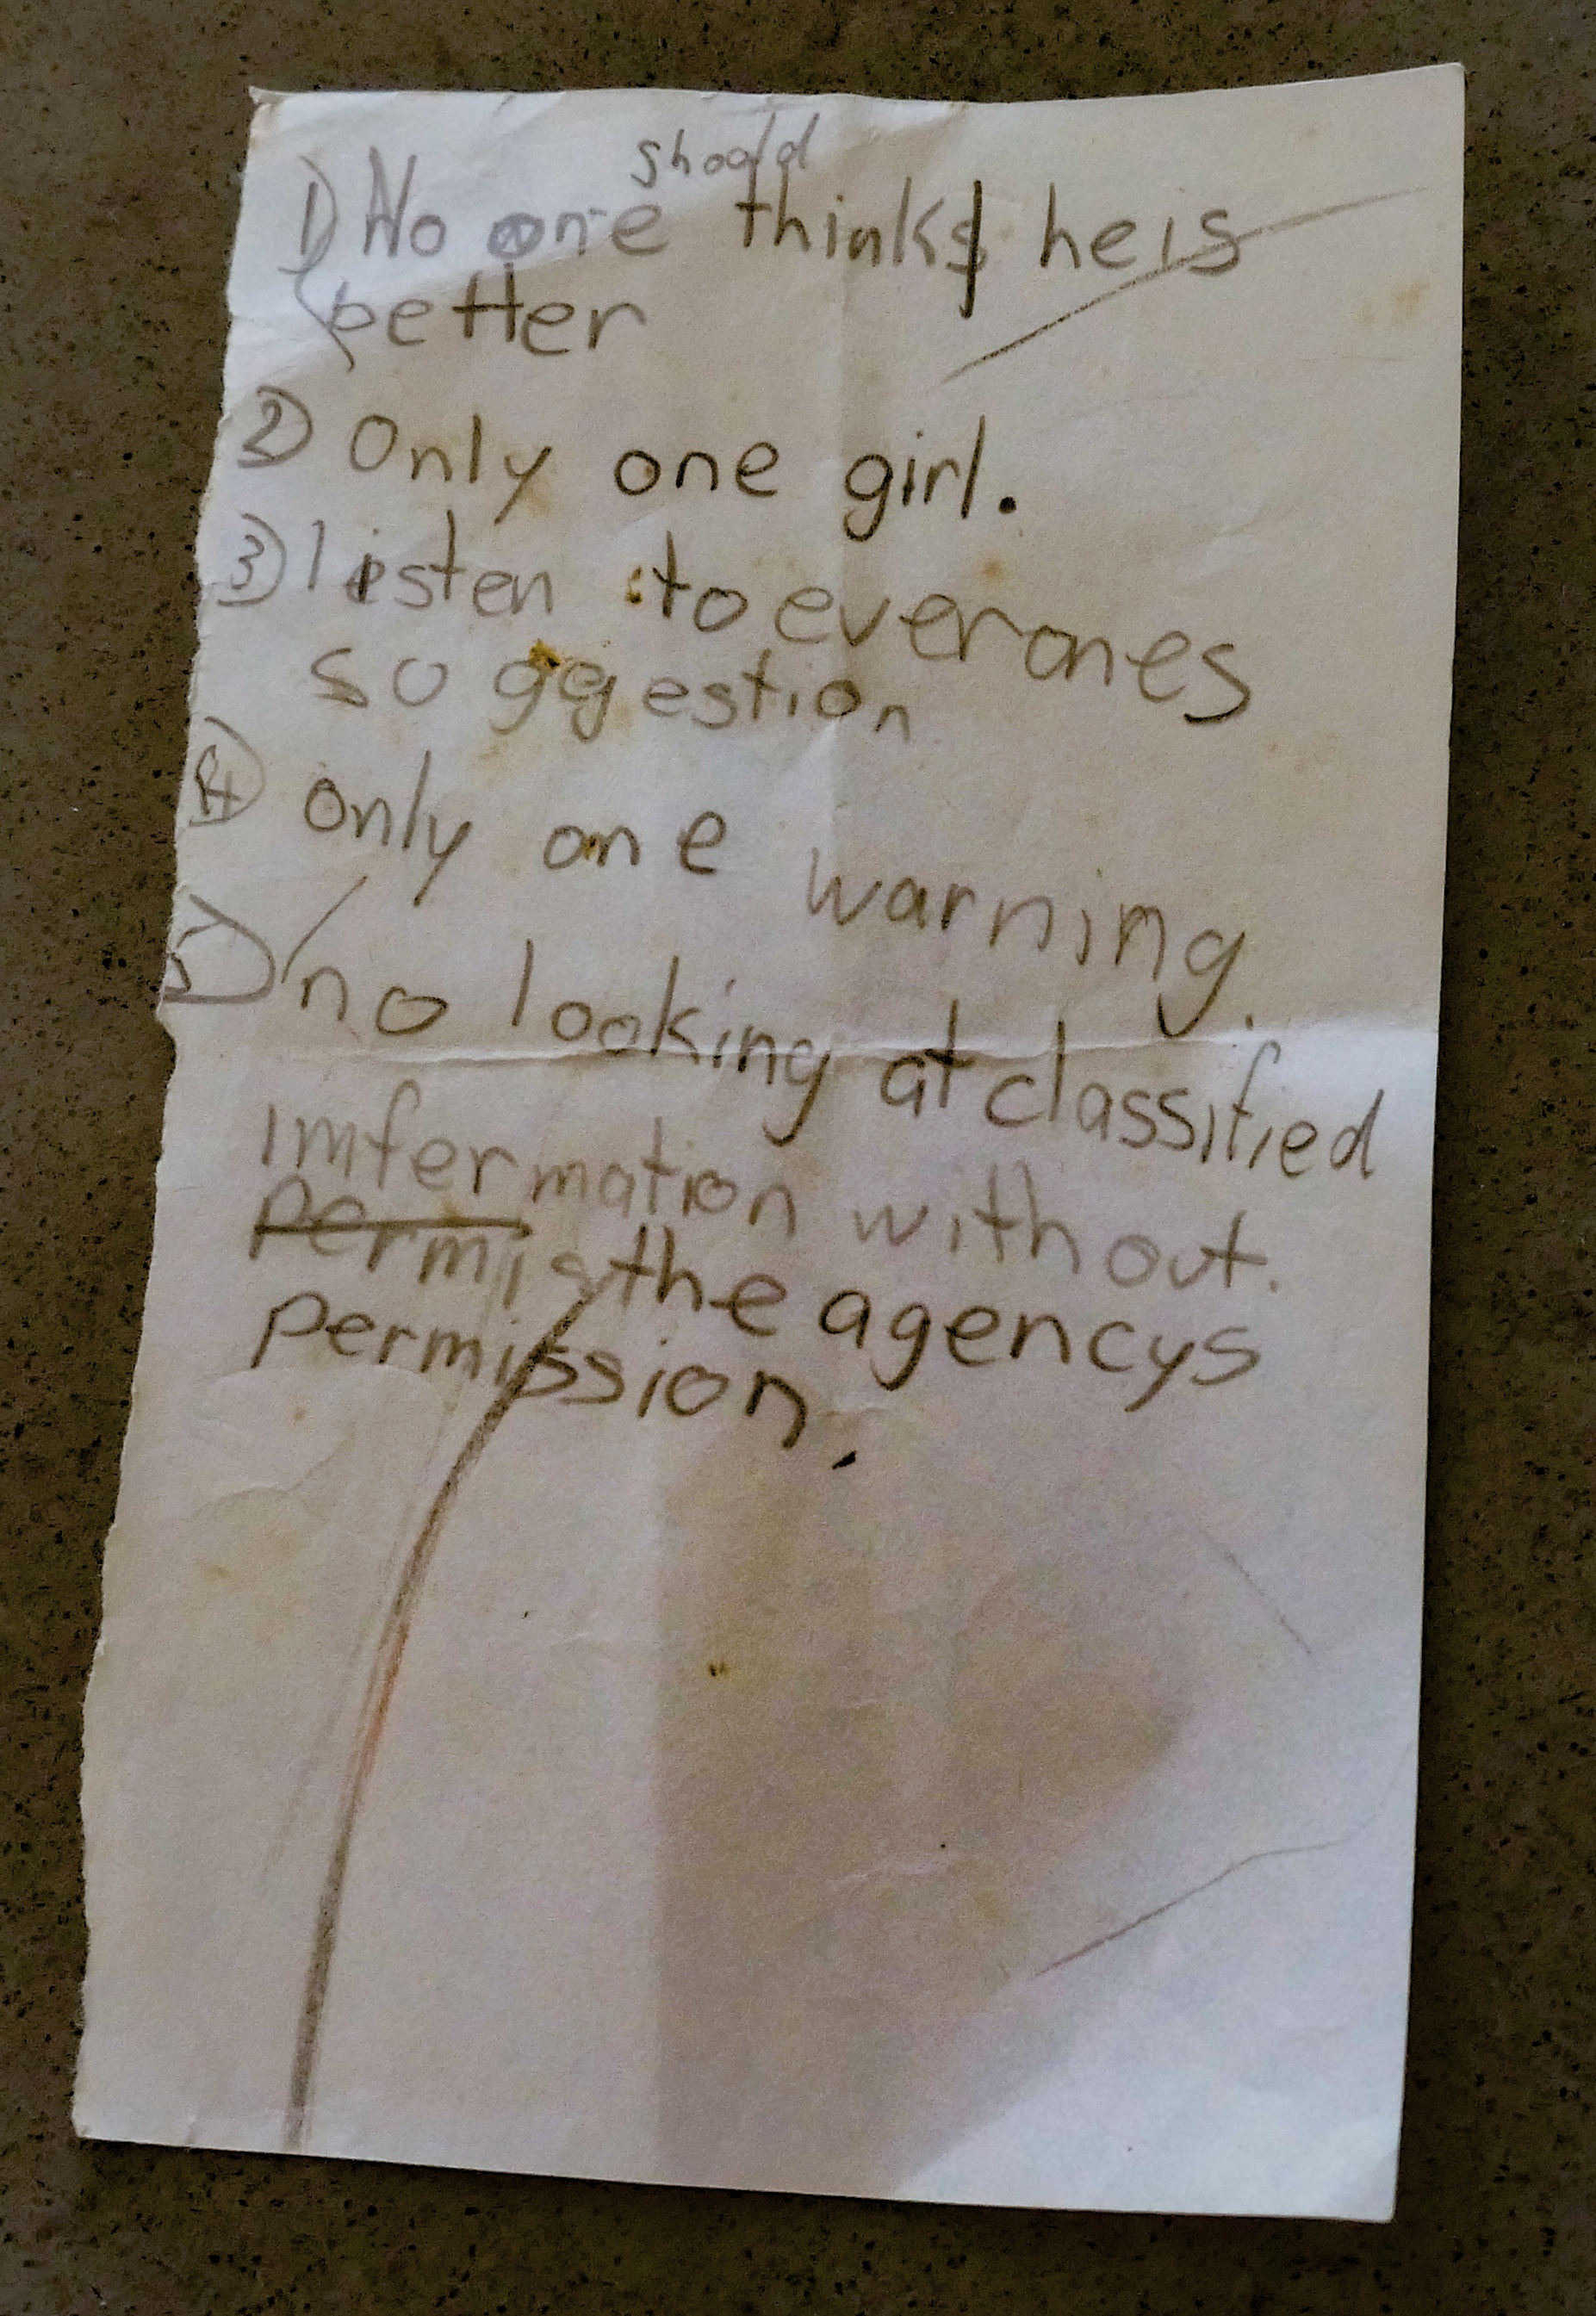 should
1) No one think he is
better
2) Only one girl.
3) listen to everones
suggestion
4) only one warning.
5) no looking at classified
imfermation without.
permis the agencys
permission.